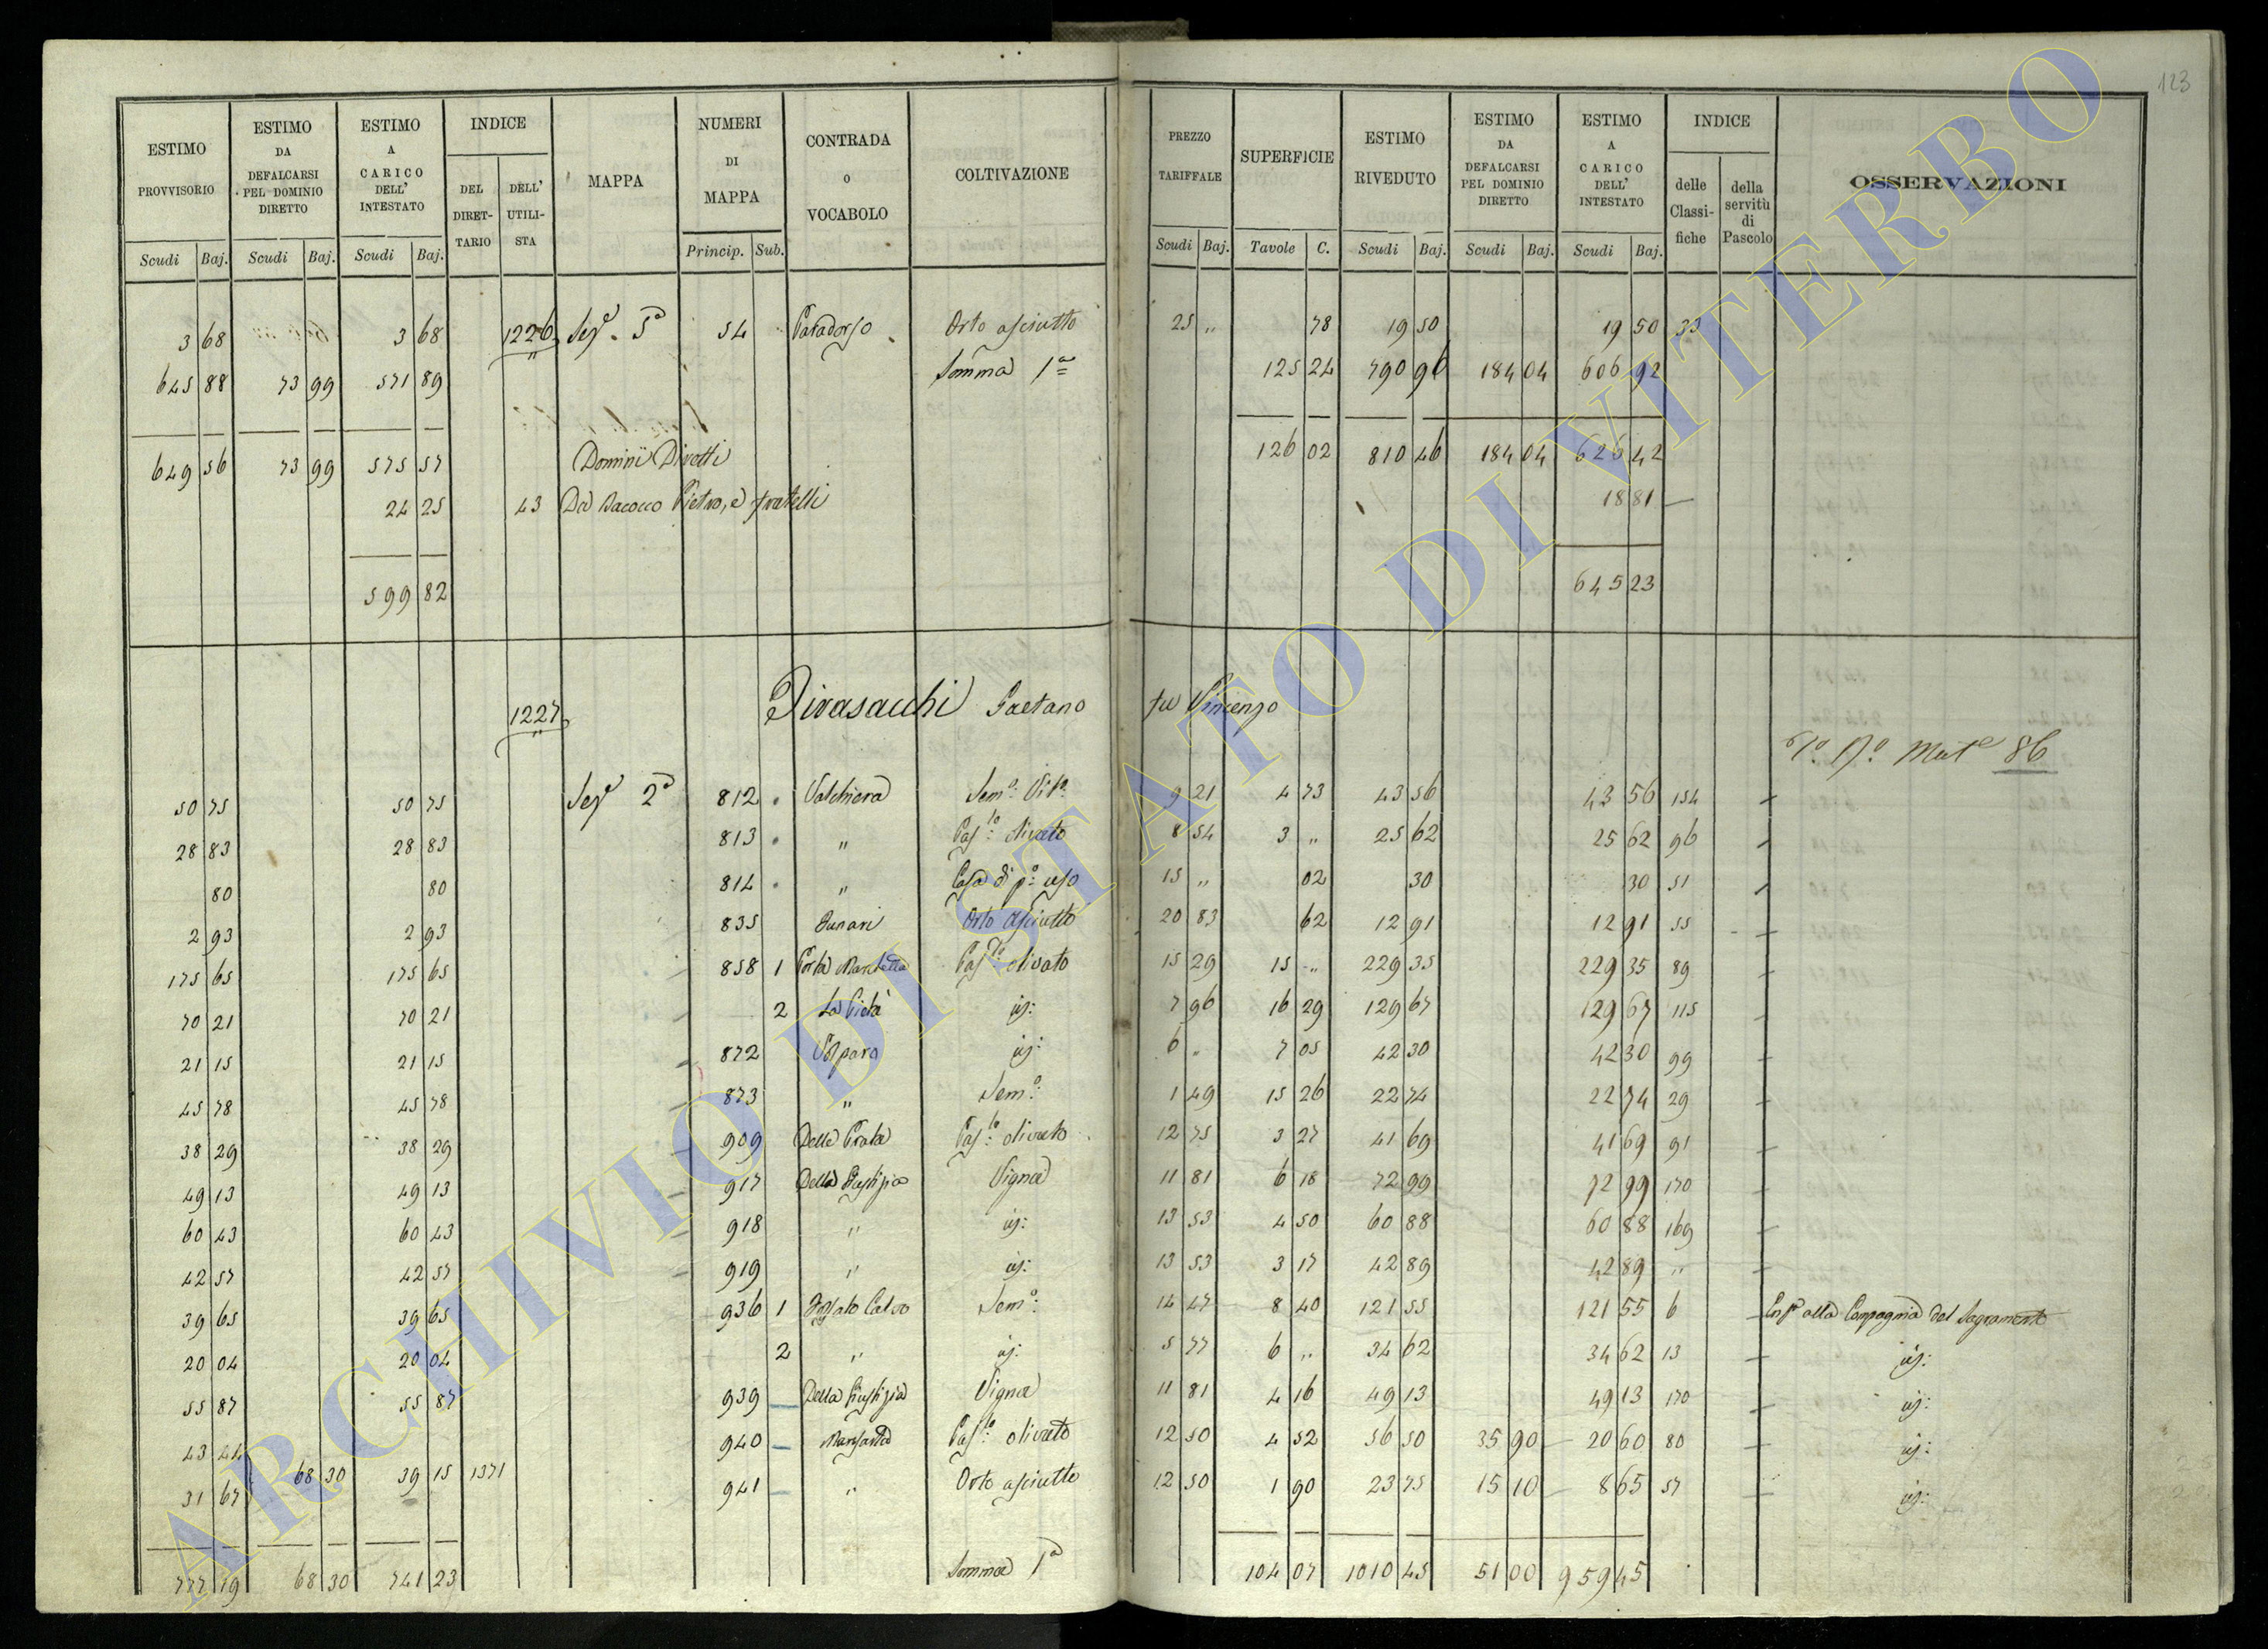 123
ESTIMO PROVVISORIO | ESTIMO DA DEFALCARSI PEL DOMINIO DIRETTO | ESTIMO A CARICO DELL' INTESTATO | INDICE | MAPPA | NUMERI DI MAPPA | CONTRADA O VOCABOLO | COLTIVAZIONE | PREZZO TARIFFALE | SUPERFICIE | ESTIMO RIVEDUTO | ESTIMO DA DEFALCARSI PEL DOMINIO DIRETTO | ESTIMO A CARICO DELL' INTESTATO | INDICE | OSSERVAZIONI
DEL DIRETTARIO | DELL' UTILISTA | delle Classifiche | della servitù di Pascolo
Scudi Baj. | Scudi Baj. | Scudi Baj. | Princip. Sub. | Scudi Baj. | Tavole C. | Scudi Baj. | Scudi Baj. | Scudi Baj.
3 68 | 3 68 | 1226 | Sezе 5a | 54 | Paradosso | Orto asciutto | 25 „ | 78 | 19 50 | 19 50 | 33
645 88 | 73 99 | 571 89 | Somma 1a | 125 24 | 790 96 | 184 04 | 606 92
649 56 | 73 99 | 575 57 | Dominii Diretti | 126 02 | 810 46 | 184 04 | 626 42
24 25 | 43 | Da Bacocco Pietro, e fratelli | 18 81
599 82 | 645 23
1227 | Gaetano fu Vincenzo
Mute 86
50 75 | 50 75 | Seze 2a | 812 | Valchiera | Semo: Vito: | 9 21 | 4 73 | 43 56 | 43 56 | 154
28 83 | 28 83 | 813 | „ | Pasto: olivato | 8 54 | 3 „ | 25 62 | 25 62 | 96
80 | 80 | 814 | „ | Casa di po: uso | 15 „ | 02 | 30 | 30 | 51
2 93 | 2 93 | 835 | Orto asciutto | 20 83 | 62 | 12 91 | 12 91 | 55
175 65 | 175 65 | 858 1 | Porta | Pasto olivato | 15 29 | 15 „ | 229 35 | 229 35 | 89
70 21 | 70 21 | 2 | La Pietà | id: | 7 96 | 16 29 | 129 67 | 129 67 | 115
21 15 | 21 15 | 872 | Volparo | id: | 6 „ | 7 05 | 42 30 | 42 30 | 99
45 78 | 45 78 | 873 | „ | Semo: | 1 49 | 15 26 | 22 74 | 22 74 | 29
38 29 | 38 29 | 909 | Delle Prata | Pasto: olivato | 12 75 | 3 27 | 41 69 | 41 69 | 91
49 13 | 49 13 | 917 | Della Giustizia | Vigna | 11 81 | 6 18 | 72 99 | 72 99 | 170
60 43 | 60 43 | 918 | „ | id: | 13 53 | 4 50 | 60 88 | 60 88 | 169
42 57 | 42 57 | 919 | „ | id: | 13 53 | 3 17 | 42 89 | 42 89 | „
39 65 | 39 65 | 936 1 | Fossato Calvo | Semo: | 14 47 | 8 40 | 121 55 | 121 55 | 6 | alla Compagnia del Sagramento
20 04 | 20 04 | 2 | „ | id: | 5 77 | 6 „ | 34 62 | 34 62 | 13 | id:
55 87 | 55 87 | 939 | Della Giustizia | Vigna | 11 81 | 4 16 | 49 13 | 49 13 | 170 | id:
43 44 | 940 | Pasto: olivato | 12 50 | 4 52 | 56 50 | 35 90 | 20 60 | 80 | id:
31 67 | 68 30 | 39 15 | 1371 | 941 | „ | Orto asciutto | 12 50 | 1 90 | 23 75 | 15 10 | 8 65 | 57 | id:
777 19 | 68 30 | 741 23 | Somma 1a | 104 07 | 1010 45 | 51 00 | 959 45
ARCHIVIO DI STATO DI VITERBO